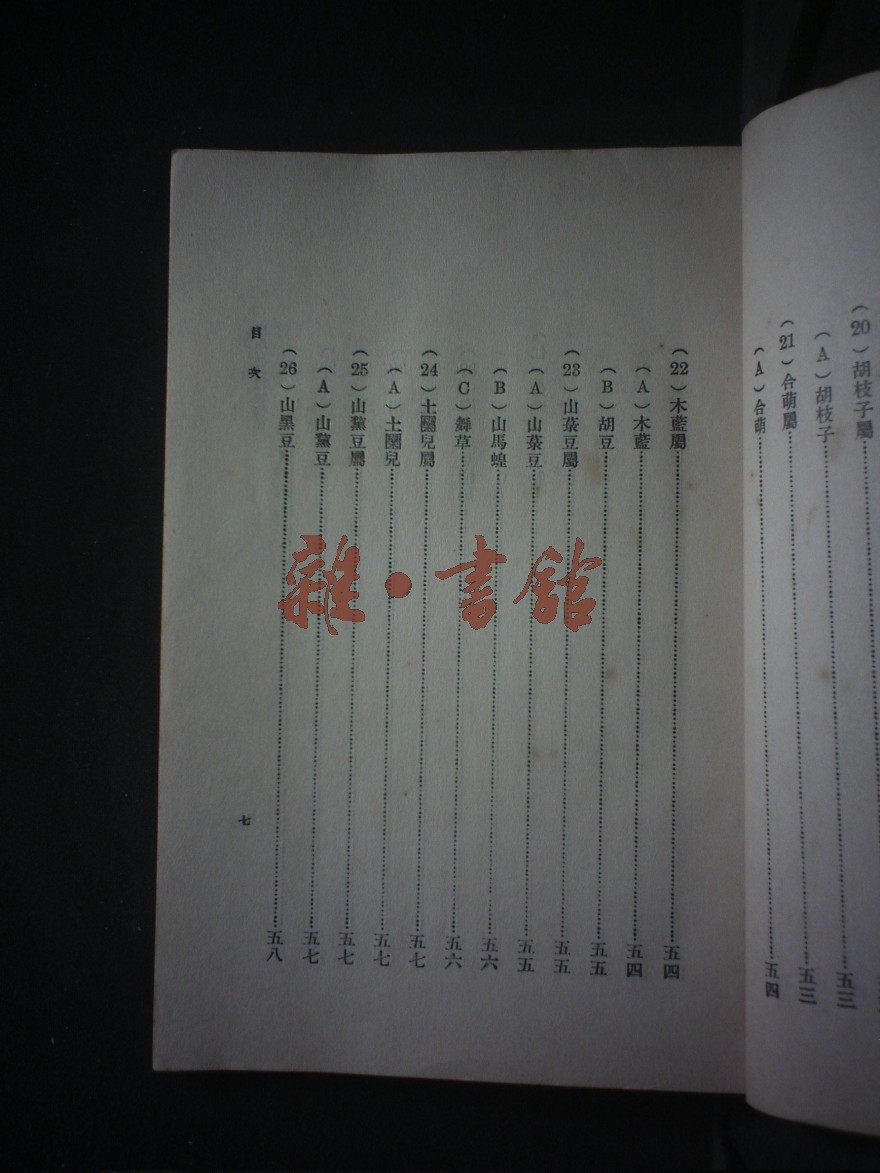 (20)胡枝子屬
(A)胡枝子……五三
(21)合萌屬……五三
(A)合萌……五四
(22)木藍屬……五四
(A)木藍……五四
(B)胡豆……五五
(23)山菉豆屬……五五
(A)山菉豆……五五
(B)山馬蝗……五六
(C)舞草……五六
(24)土圞兒屬……五七
(A)土圞兒……五七
(25)山黧豆屬……五七
(A)山黧豆……五七
(26)山黑豆……五八
目次
七
雜·書館